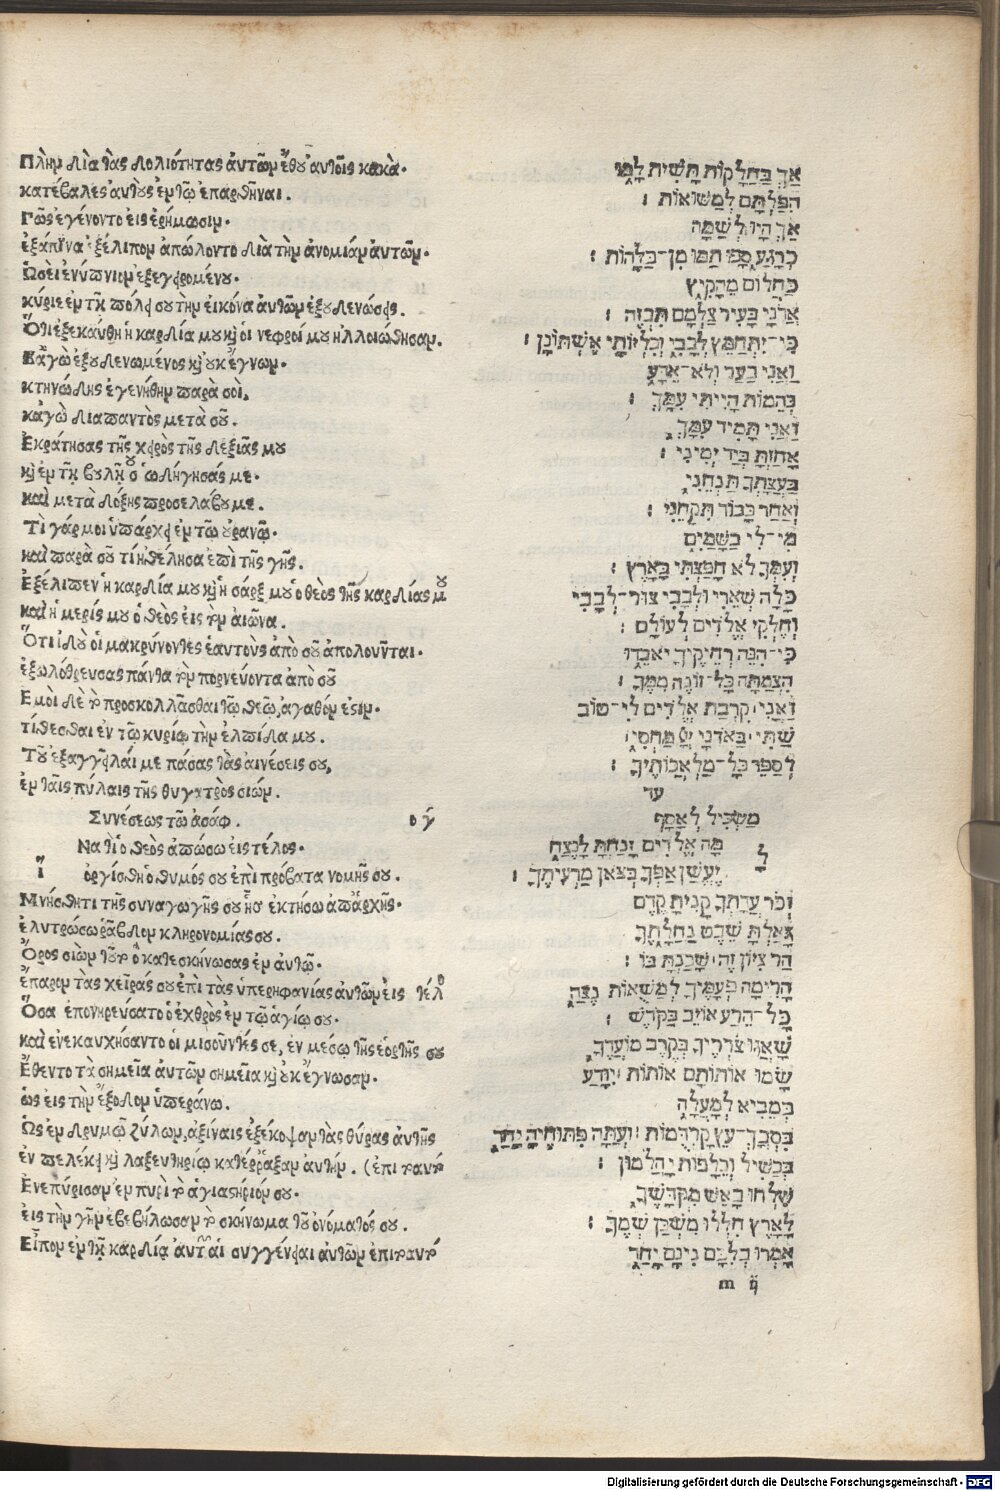 Πλὴν διὰ τὰς δολιότητας ἀυτῶν ἔθου ἀυτοῖς κακὰ.
κατέβαλες ἀυτοὺς ἐν τῷ ἐπαρθῆναι.
Γῶς ἐγένοντο εἰς ἐρήμωσιν.
ἐξάπινα ἐξέλιπον ἀπώλοντο διὰ τὴν ἀνομίαν ἀυτῶν.
Ὡσεὶ ἐνύπνιον ἐξεγειρομένου.
κύριε ἐν τῇ πόλει σου τὴν εἰκόνα ἀυτῶν ἐξουδενώσεις.
Ὅτι ἐξεκαύθη ἡ καρδία μου καὶ οἱ νεφροί μου ἠλλοιώθησαν.
Κἀγὼ ἐξουδενωμένος καὶ ουκ ἔγνων.
κτηνώδης ἐγενήθην παρὰ σοὶ,
κἀγὼ διαπαντὸς μετὰ σοῦ.
Ἐκράτησας τῆς χειρὸς τῆς δεξιᾶς μου
καὶ ἐν τῇ βουλῇ σου ὡδήγησάς με.
καὶ μετὰ δόξης προσελάβου με.
Τί γάρ μοι ὑπάρχει ἐν τῷ ουρανῷ.
καὶ παρὰ σοῦ τί ἠθέλησα ἐπὶ τῆς γῆς.
Ἐξέλιπεν ἡ καρδία μου καὶ ἡ σάρξ μου ὁ θεὸς τῆς καρδίας μου
καὶ ἡ μερίς μου ὁ θεὸς εἰς τὸν αἰῶνα.
Ὅτι ἰδοὺ οἱ μακρύνοντες ἑαυτοὺς ἀπὸ σοῦ ἀπολοῦνται.
ἐξωλόθρευσας πάντα τὸν πορνεύοντα ἀπὸ σοῦ
Ἐμοὶ δὲ τὸ προσκολλᾶσθαι τῷ θεῷ, ἀγαθόν ἐστιν.
τίθεσθαι ἐν τῷ κυρίῳ τὴν ἐλπίδα μου.
Τοῦ ἐξαγγεῖλαί με πάσας τὰς αἰνέσεις σου,
ἐν ταῖς πύλαις τῆς θυγατρὸς σιών.
Συνέσεως τῷ ἀσάφ. ογ
Ἵνα τί ὁ θεὸς ἀπώσω εἰς τέλος.
ὀργίσθη ὁ θυμός σου ἐπὶ πρόβατα νομῆς σου.
Μνήσθητι τῆς συναγωγῆς σου ἧς ἐκτήσω ἀπ' ἀρχῆς.
ἐλυτρώσω ῥάβδον κληρονομίας σου.
Ὄρος σιὼν τοῦτο ὃ κατεσκήνωσας ἐν ἀυτῷ.
ἔπαρον τὰς χεῖράς σου ἐπὶ τὰς ὑπερηφανίας ἀυτῶν εἰς τέλος
Ὅσα ἐπονηρεύσατο ὁ ἐχθρὸς ἐν τῷ ἁγίῳ σου.
καὶ ἐνεκαυχήσαντο οἱ μισοῦντές σε, ἐν μέσῳ τῆς ἑορτῆς σου
Ἔθεντο τὰ σημεῖα ἀυτῶν σημεῖα καὶ ουκ ἔγνωσαν.
ὡς εἰς τὴν ἔξοδον ὑπεράνω.
Ὡς ἐν δρυμῷ ξύλων, ἀξίναις ἐξέκοψαν τὰς θύρας ἀυτῆς
ἐν πελέκει καὶ λαξευτηρίῳ κατέρραξαν ἀυτήν. (ἐπιτοαυτό
Ἐνεπύρισαν ἐν πυρὶ τὸ ἁγιαστήριόν σου.
εἰς τὴν γῆν ἐβεβήλωσαν τὸ σκήνωμα τοῦ ὀνόματός σου.
Εἶπον ἐν τῇ καρδίᾳ ἀυτῶν αἱ συγγένειαι ἀυτῶν ἐπιτοαυτό
אַךְ בַּחֲלָקוֹת תָּשִׁית לָמוֹ
הִפַּלְתָּם לְמַשּׁוּאוֹת :
אֵךְ הָיוּ לְשַׁמָּה
כְרָגַע סָפוּ תַמּוּ מִן־בַּלָּהוֹת :
כַּחֲלוֹם מֵהָקִיץ
אֲדֹנָי בָּעִיר צַלְמָם תִּבְזֶה :
כִּי־יִתְחַמֵּץ לְבָבִי וְכִלְיוֹתַי אֶשְׁתּוֹנָן :
וַאֲנִי בַעַר וְלֹא־אֵדָע
בְּהֵמוֹת הָיִיתִי עִמָּךְ :
וַאֲנִי תָּמִיד עִמָּךְ
אָחַזְתָּ בְּיַד יְמִינִי :
בַּעֲצָתְךָ תַנְחֵנִי
וְאַחַר כָּבוֹד תִּקָּחֵנִי :
מִי־לִי בַשָּׁמָיִם
וְעִמְּךָ לֹא חָפַצְתִּי בָאָרֶץ :
כָּלָה שְׁאֵרִי וּלְבָבִי צוּר־לְבָבִי
וְחֶלְקִי אֱלֹדִים לְעוֹלָם :
כִּי־הִנֵּה רְחֵיקֶיךָ יֹאבֵדוּ
הִצְמַתָּה כָּל־זוֹנֶה מִמֶּךָּ :
וַאֲנִי קִרְבַת אֱלֹדִים לִי־טוֹב
שַׁתִּי בַּאדֹנָי מַחְסִי
לְסַפֵּר כָּל־מַלְאֲכוֹתֶיךָ :
עד
מַשְׂכִּיל לְאָסָף
לָמָה אֱלֹדִים זָנַחְתָּ לָנֶצַח
יֶעְשַׁן אַפְּךָ בְּצֹאן מַרְעִיתֶךָ :
זְכֹר עֲדָתְךָ קָנִיתָ קֶדֶם
גָּאַלְתָּ שֵׁבֶט נַחֲלָתֶךָ
הַר צִיּוֹן זֶה שָׁכַנְתָּ בּוֹ :
הָרִימָה פְעָמֶיךָ לְמַשֻּׁאוֹת נֶצַח
כָּל־הֵרַע אוֹיֵב בַּקֹּדֶשׁ :
שָׁאֲגוּ צֹרְרֶיךָ בְּקֶרֶב מוֹעֲדֶךָ
שָׂמוּ אוֹתוֹתָם אוֹתוֹת יִוָּדַע
כְּמֵבִיא לְמָעְלָה
בִּסְבָךְ־עֵץ קַרְדֻּמּוֹת וְעַתָּה פִּתּוּחֶיהָ יָחַד
בְּכַשִּׁיל וְכֵלַפּוֹת יַהֲלֹמוּן :
שִׁלְחוּ בָאֵשׁ מִקְדָּשֶׁךָ
לָאָרֶץ חִלְּלוּ מִשְׁכַּן שְׁמֶךָ :
אָמְרוּ בְלִבָּם נִינָם יָחַד
m ij
Digitalisierung gefördert durch die Deutsche Forschungsgemeinschaft - DFG